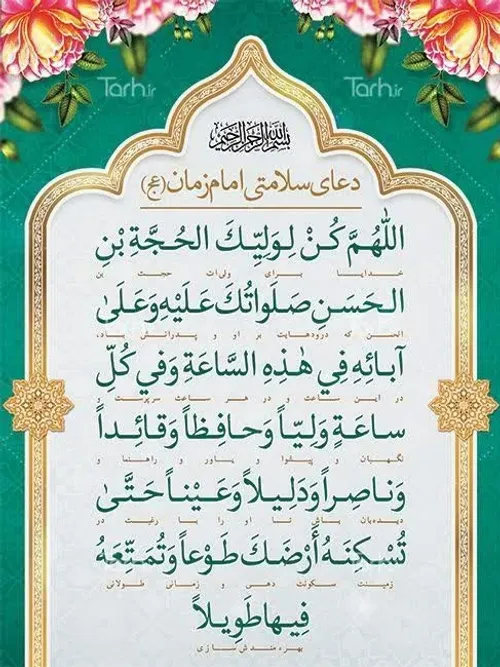 Tarh.ir Tarh.ir
بسم الله الرحمن الرحيم
دعای سلامتی امام زمان (عج)
اللّٰهُمَّ كُنْ لِوَلِيِّكَ الحُجَّةِ بْنِ
خدایا برای ولی‌ات حجت بن
الحَسَنِ صَلَواتُكَ عَلَيْهِ وَعَلىٰ
الحسن که درودهایت بر او و پدرانش باد،
آبائِهِ فِي هٰذِهِ السَّاعَةِ وَفي كُلِّ
در این ساعت و در هر ساعت سرپرست و
ساعَةٍ وَلِيّاً وَحافِظاً وَقائِداً
نگهبان و پیشوا و یاور و راهنما و
وَناصِراً وَدَلِيلاً وَعَيْناً حَتَّىٰ
دیده‌بان باش تا او را با رغبت در
تُسْكِنَهُ أَرْضَكَ طَوْعاً وَتُمَتِّعَهُ
زمینت سکونت دهی و زمانی طولانی
فِيها طَوِيلاً
بهره‌مندش سازی